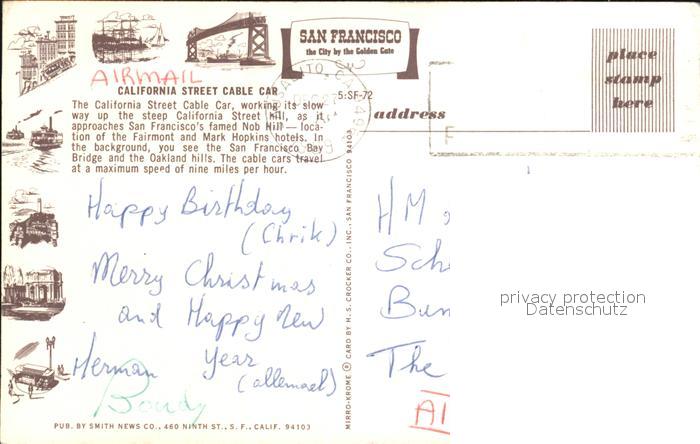 SAN FRANCISCO
the City by the Golden Gate
AIRMAIL
CALIFORNIA STREET CABLE CAR
5:SF-72
The California Street Cable Car, working its slow
way up the steep California Street hill, as it
approaches San Francisco's famed Nob Hill — loca-
tion of the Fairmont and Mark Hopkins hotels. In
the background, you see the San Francisco Bay
Bridge and the Oakland hills. The cable cars travel
at a maximum speed of nine miles per hour.
Happy Birthday
(Chrik)
Merry Christmas
and Happy New
Year
Herman
(allemael)
Bondy
PUB. BY SMITH NEWS CO., 460 NINTH ST., S. F., CALIF. 94103
MIRRO-KROME ® CARD BY H. S. CROCKER CO., INC., SAN FRANCISCO, 94103
address
place
stamp
here
HM
Sch
Bun
The
AI
privacy protection
Datenschutz